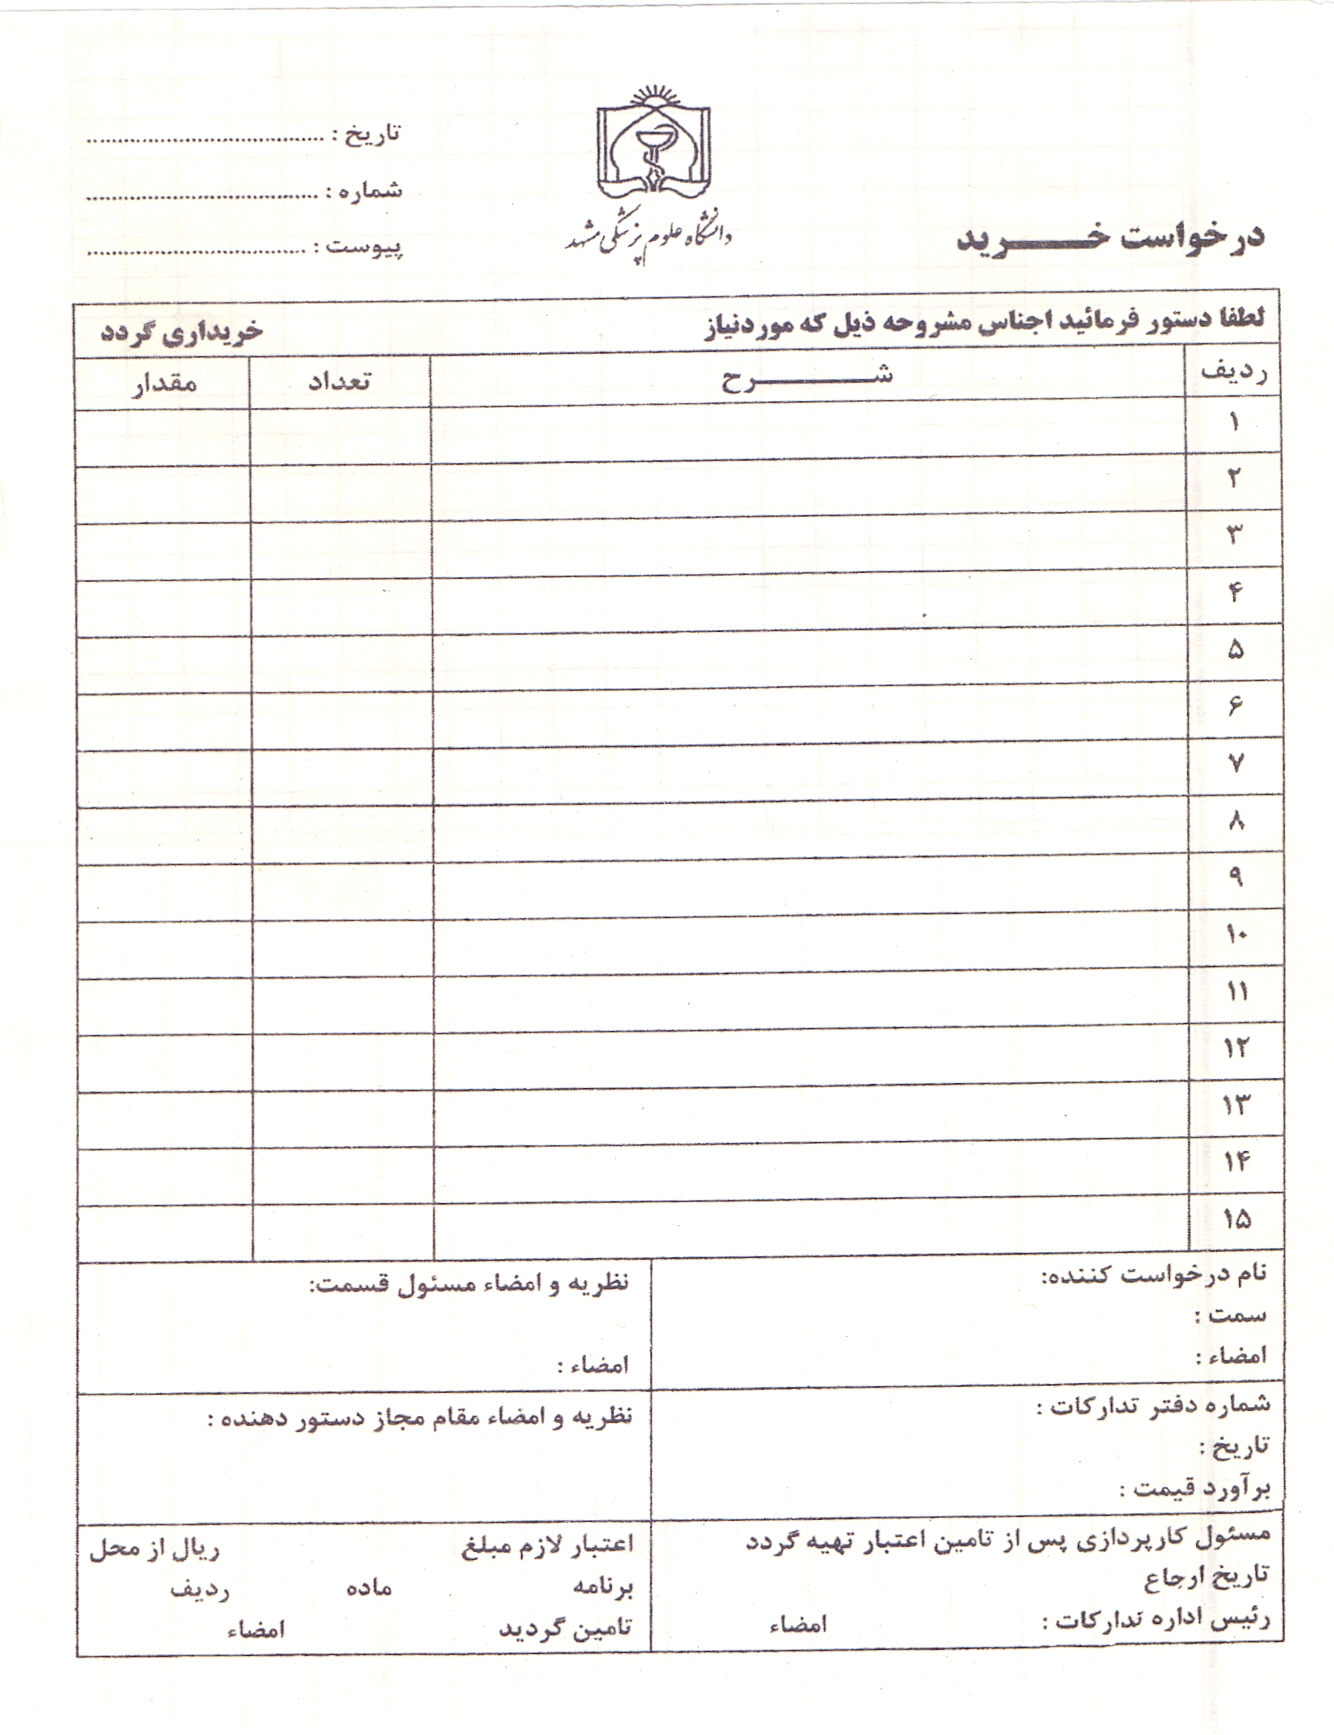 تاریخ : ......................................
شماره : .....................................
پیوست : ...................................
دانشگاه علوم پزشکی مشهد
درخواست خـــــرید
لطفا دستور فرمائید اجناس مشروحه ذیل که موردنیاز خریداری گردد
ردیف شـــــــــرح تعداد مقدار
۱
۲
۳
۴
۵
۶
۷
۸
۹
۱۰
۱۱
۱۲
۱۳
۱۴
۱۵
نام درخواست کننده:
سمت :
امضاء :
نظریه و امضاء مسئول قسمت:
امضاء :
شماره دفتر تدارکات :
تاریخ :
برآورد قیمت :
نظریه و امضاء مقام مجاز دستور دهنده :
مسئول کارپردازی پس از تامین اعتبار تهیه گردد
تاریخ ارجاع
رئیس اداره تدارکات : امضاء
اعتبار لازم مبلغ ریال از محل
برنامه ماده ردیف
تامین گردید امضاء